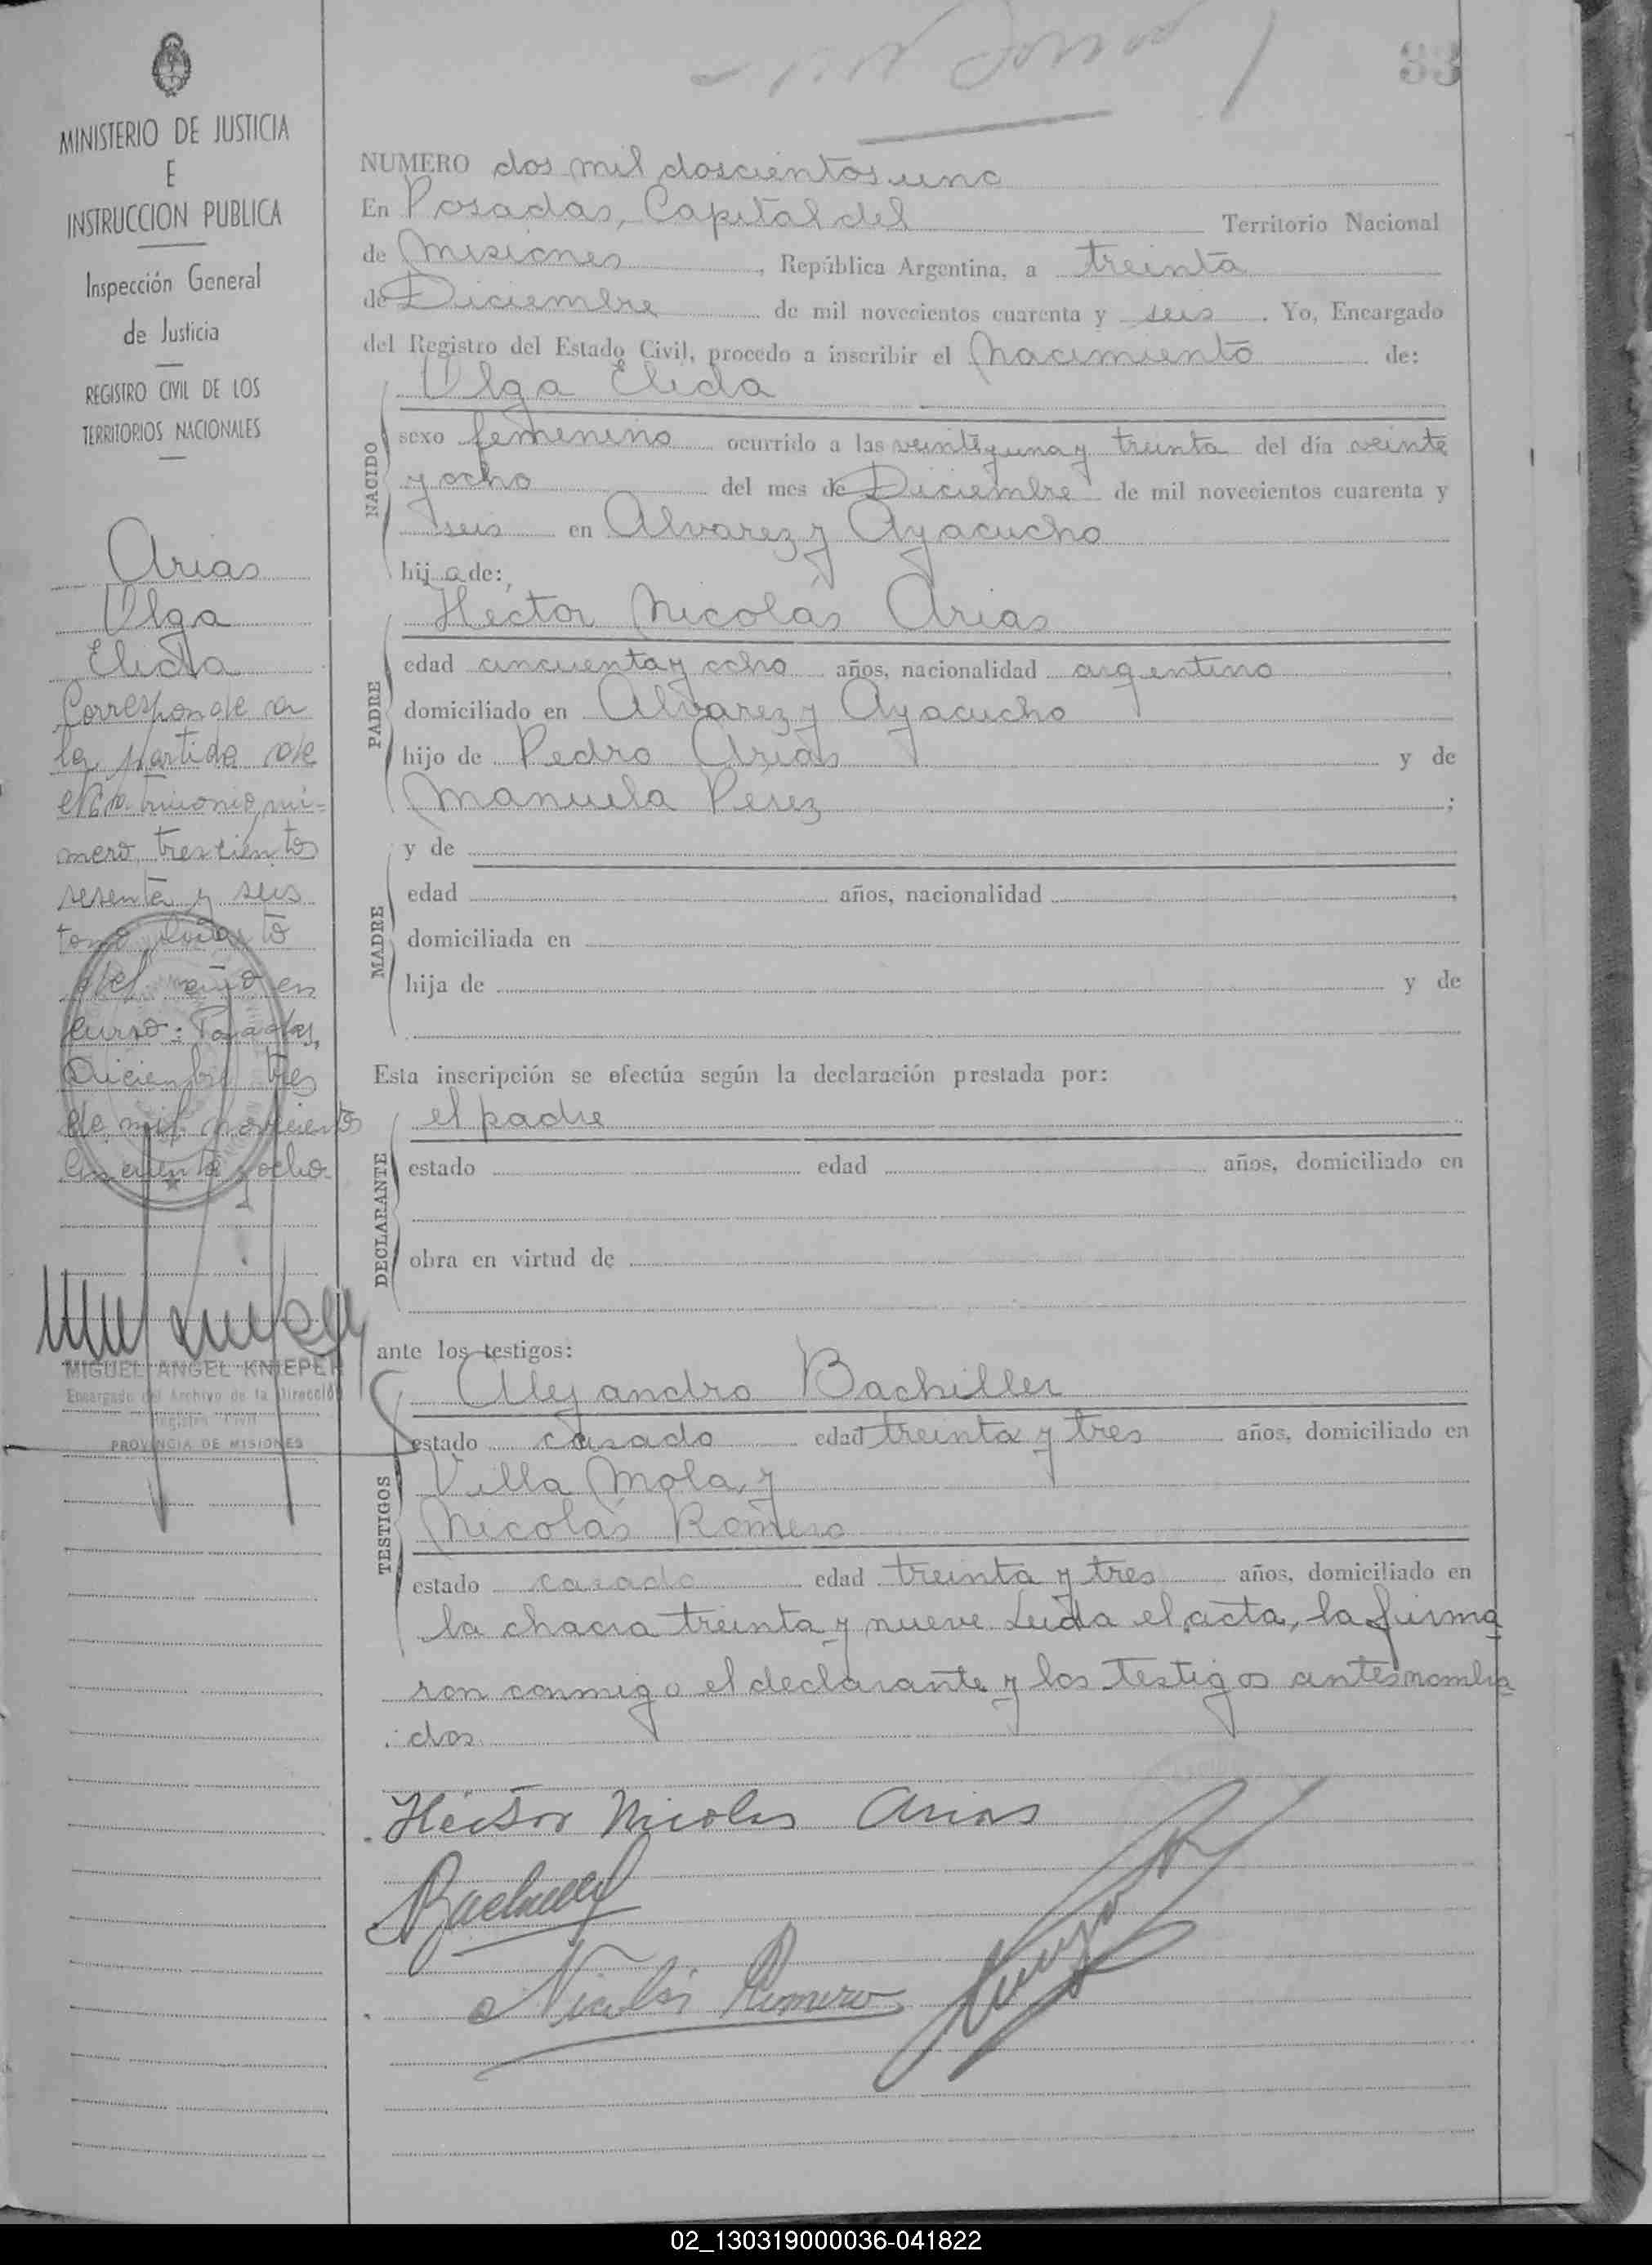 33
MINISTERIO DE JUSTICIA
E
INSTRUCCION PUBLICA
Inspección General
de Justicia
REGISTRO CIVIL DE LOS
TERRITORIOS NACIONALES
Arias
Olga
Elida
Corresponde a
la partida de
matrimonio nú-
mero trescientos
sesenta y seis
tomo
del año en
curso: Posadas,
Diciembre tres
de mil novecientos
cincuenta y ocho
MIGUEL ANGEL KNIEPER
Encargado del Archivo de la Dirección
Registro Civil
PROVINCIA DE MISIONES
NUMERO dos mil doscientos uno
En Posadas, Capital del Territorio Nacional
de Misiones, República Argentina, a treinta
de Diciembre de mil novecientos cuarenta y seis. Yo, Encargado
del Registro del Estado Civil, procedo a inscribir el Nacimiento de:
NACIDO
Olga Elida
sexo femenino ocurrido a las veintiyuna y treinta del día veinte
y ocho del mes de Diciembre de mil novecientos cuarenta y
seis en Alvarez y Ayacucho
hija de:
PADRE
Héctor Nicolás Arias
edad cincuenta y ocho años, nacionalidad argentino
domiciliado en Alvarez y Ayacucho
hijo de Pedro Arias y de
Manuela Pérez;
MADRE
y de
edad años, nacionalidad
domiciliada en
hija de y de
Esta inscripción se efectúa según la declaración prestada por:
DECLARANTE
el padre
estado edad años, domiciliado en
obra en virtud de
ante los testigos:
TESTIGOS
Alejandro Bachiller
estado casado edad treinta y tres años, domiciliado en
Villa Mola, y
Nicolás Romero
estado casado edad treinta y tres años, domiciliado en
la chacra treinta y nueve Leída el acta, la firma
ron conmigo el declarante y los testigos antesnombra
dos.
Héctor Nicolas Arias
Nicolás Romero
02_130319000036-041822